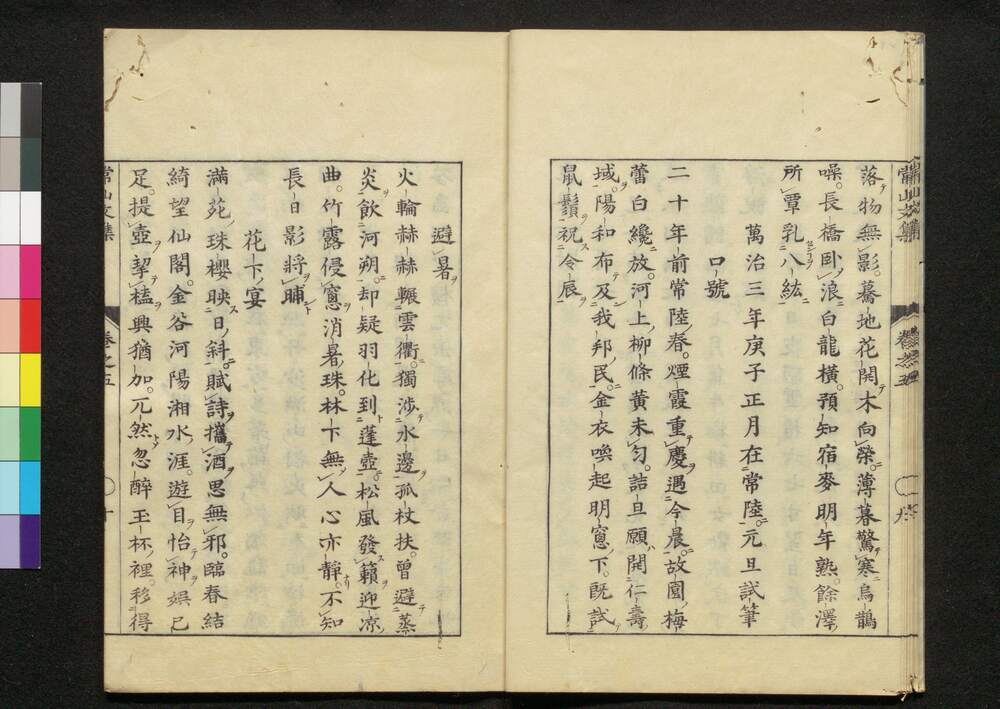 落物無影驀地花開木向榮薄暮驚寒烏鵲
噪長橋臥浪白龍橫預知宿麥明年熟餘澤
所覃乳八紘
口號
萬治三年庚子正月在常陸元旦試筆
二十年前常陸春煙霞重慶遇今晨故園梅
蕾白纔放河上柳條黃未勻詰旦願開仁壽
域陽和布及我邦民金衣喚起明窻下既試
鼠鬚祝令辰
常山文集
卷之五
九
避暑
火輪赫赫輾雲衢獨涉水邊孤杖扶曾避蒸
炎飲河朔却疑羽化到蓬壺松風發籟迎凉
曲竹露侵窻消暑珠林下無人心亦靜不知
長日影將晡
花下宴
滿苑珠櫻映日斜賦詩攜酒思無邪臨春結
綺望仙閣金谷河陽湘水涯遊目怡神娛已
足提壺挈榼興猶加兀然忽醉玉杯裡移得
常山文集
卷之五
十